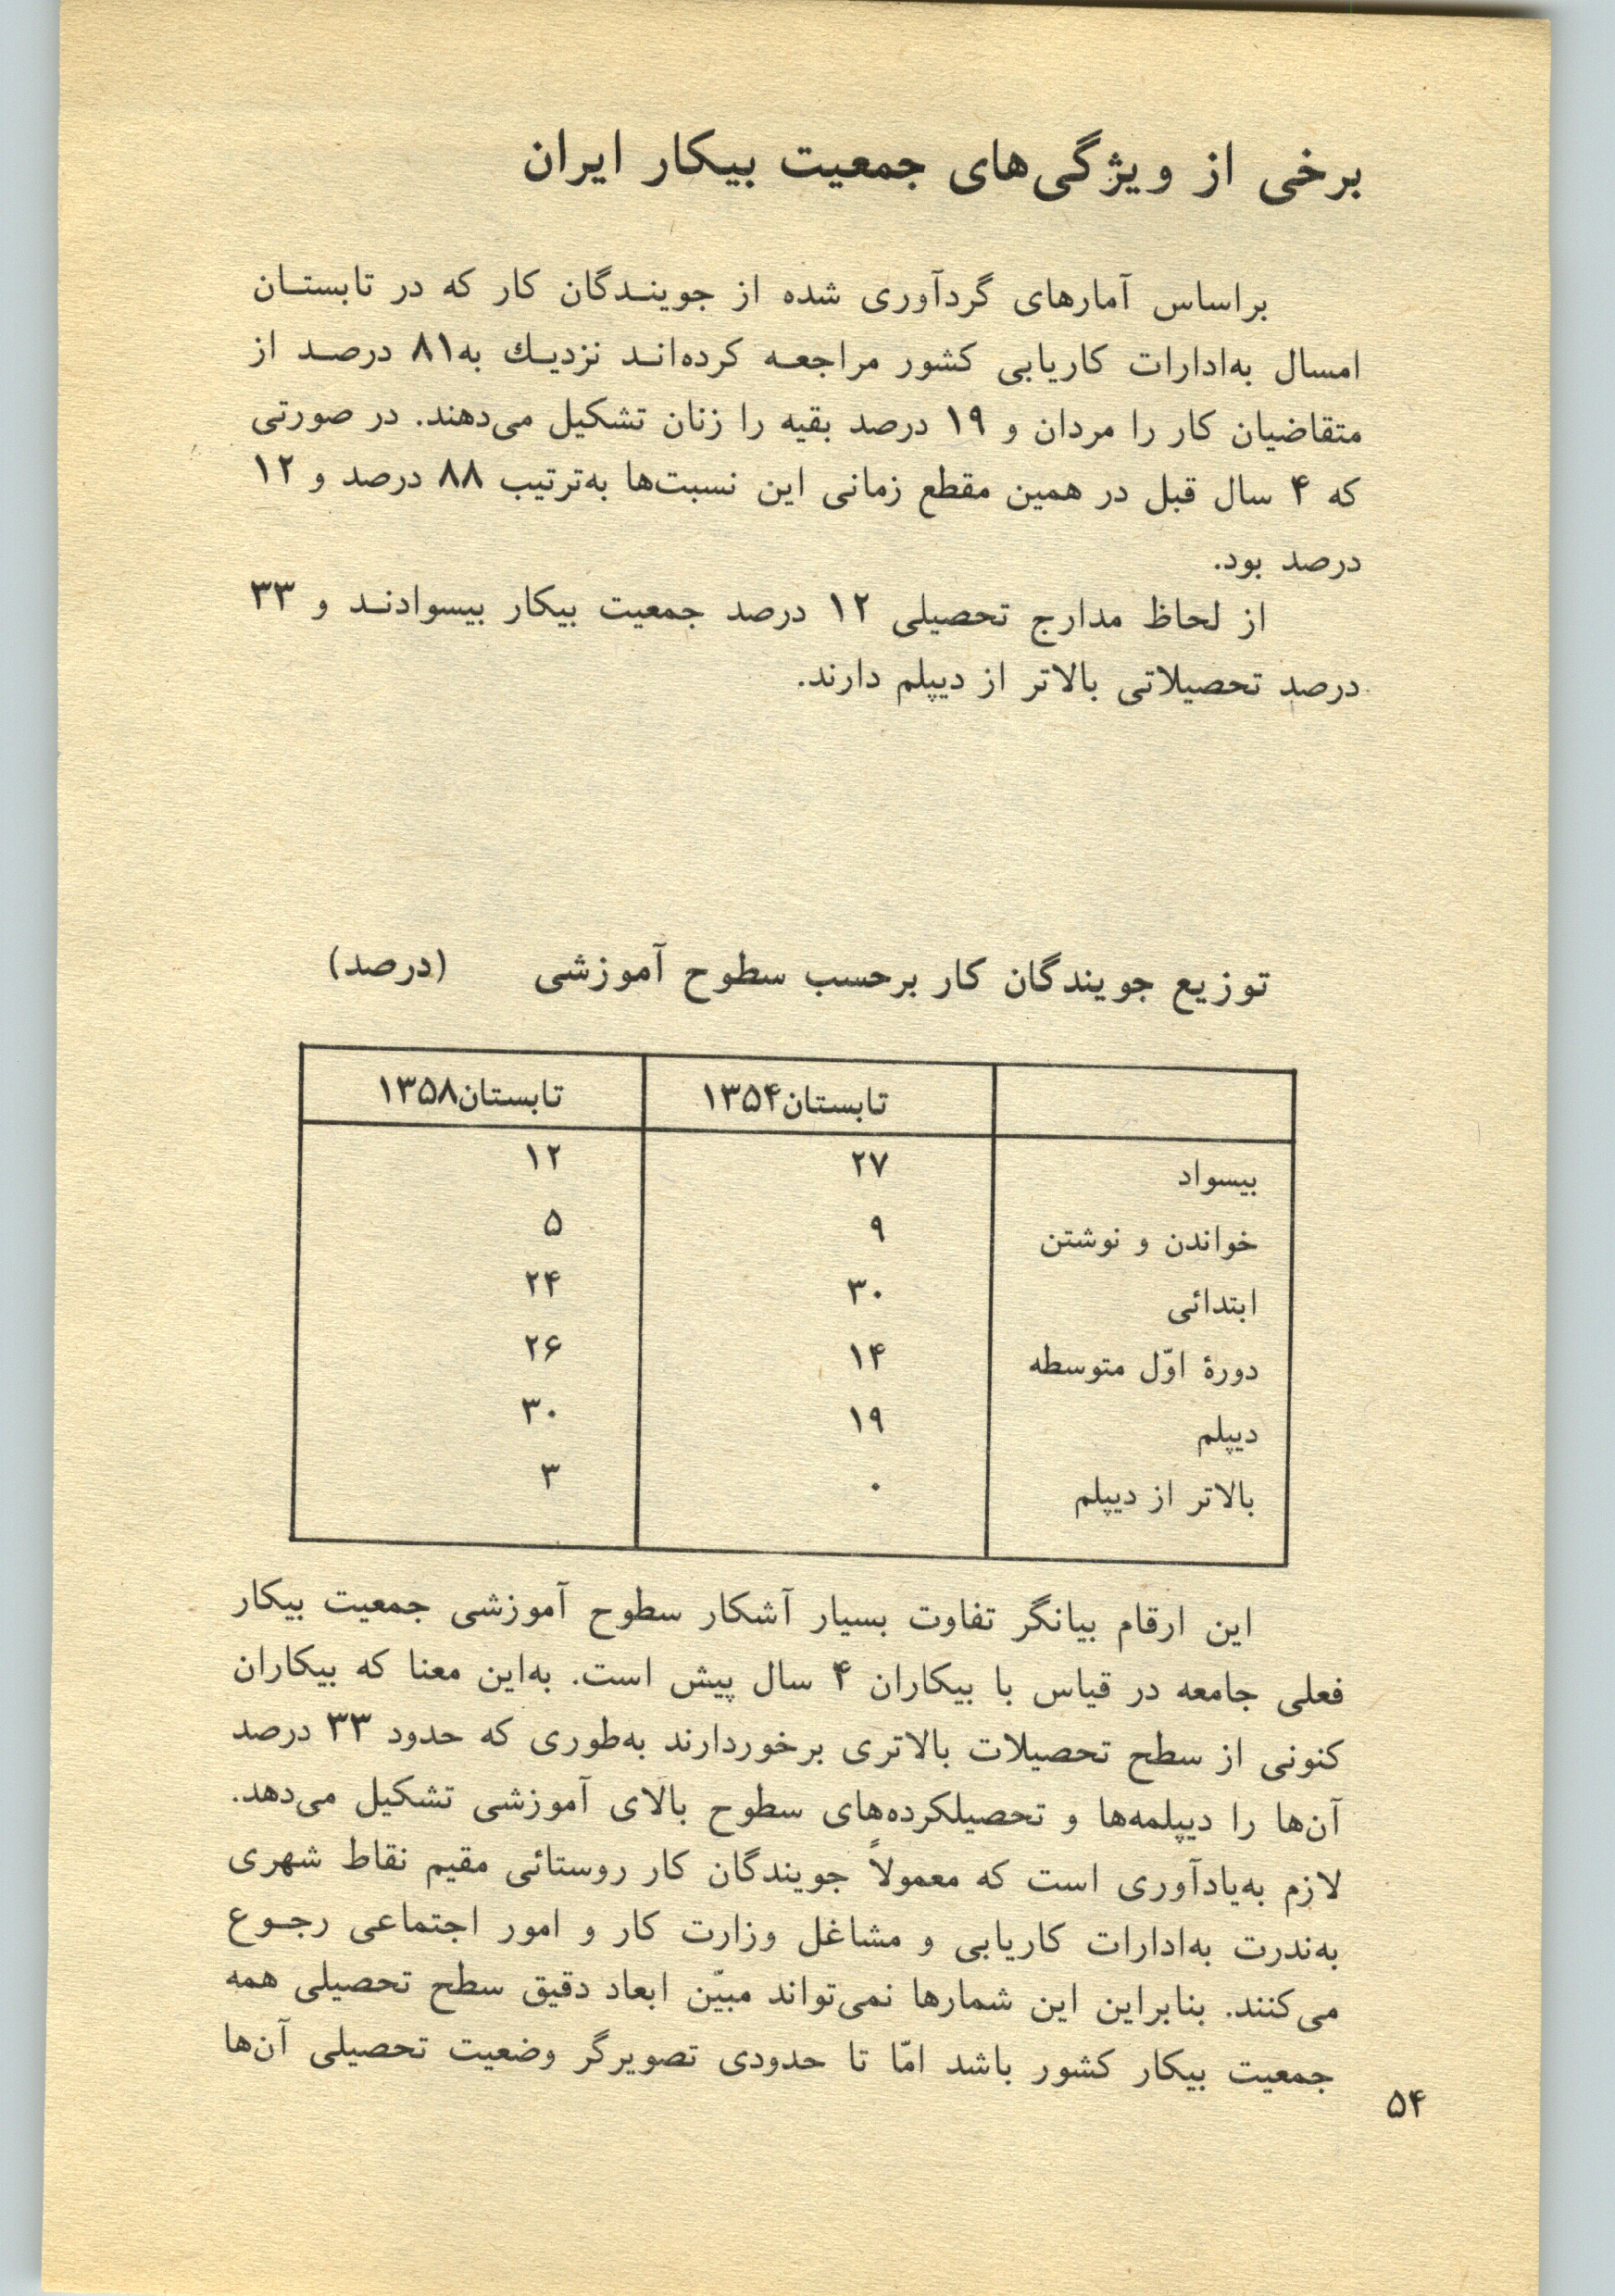 برخی از ویژگی‌های جمعیت بیکار ایران
براساس آمارهای گردآوری شده از جوینـدگان کار که در تابستـان
امسال به‌ادارات کاریابی کشور مراجعـه کرده‌انـد نزدیـك به۸۱ درصـد از
متقاضیان کار را مردان و ۱۹ درصد بقیه را زنان تشکیل می‌دهند. در صورتی
که ۴ سال قبل در همین مقطع زمانی این نسبت‌ها به‌ترتیب ۸۸ درصد و ۱۲
درصد بود.
از لحاظ مدارج تحصیلی ۱۲ درصد جمعیت بیکار بیسوادنـد و ۳۳
درصد تحصیلاتی بالاتر از دیپلم دارند.
توزیع جویندگان کار برحسب سطوح آموزشی (درصد)
تابستان۱۳۵۴ تابستان۱۳۵۸
بیسواد ۲۷ ۱۲
خواندن و نوشتن ۹ ۵
ابتدائی ۳۰ ۲۴
دورهٔ اوّل متوسطه ۱۴ ۲۶
دیپلم ۱۹ ۳۰
بالاتر از دیپلم ۰ ۳
این ارقام بیانگر تفاوت بسیار آشکار سطوح آموزشی جمعیت بیکار
فعلی جامعه در قیاس با بیکاران ۴ سال پیش است. به‌این معنا که بیکاران
کنونی از سطح تحصیلات بالاتری برخوردارند به‌طوری که حدود ۳۳ درصد
آن‌ها را دیپلمه‌ها و تحصیلکرده‌های سطوح بالای آموزشی تشکیل می‌دهد.
لازم به‌یادآوری است که معمولاً جویندگان کار روستائی مقیم نقاط شهری
به‌ندرت به‌ادارات کاریابی و مشاغل وزارت کار و امور اجتماعی رجـوع
می‌کنند. بنابراین این شمارها نمی‌تواند مبیّن ابعاد دقیق سطح تحصیلی همه
جمعیت بیکار کشور باشد امّا تا حدودی تصویرگر وضعیت تحصیلی آن‌ها
۵۴